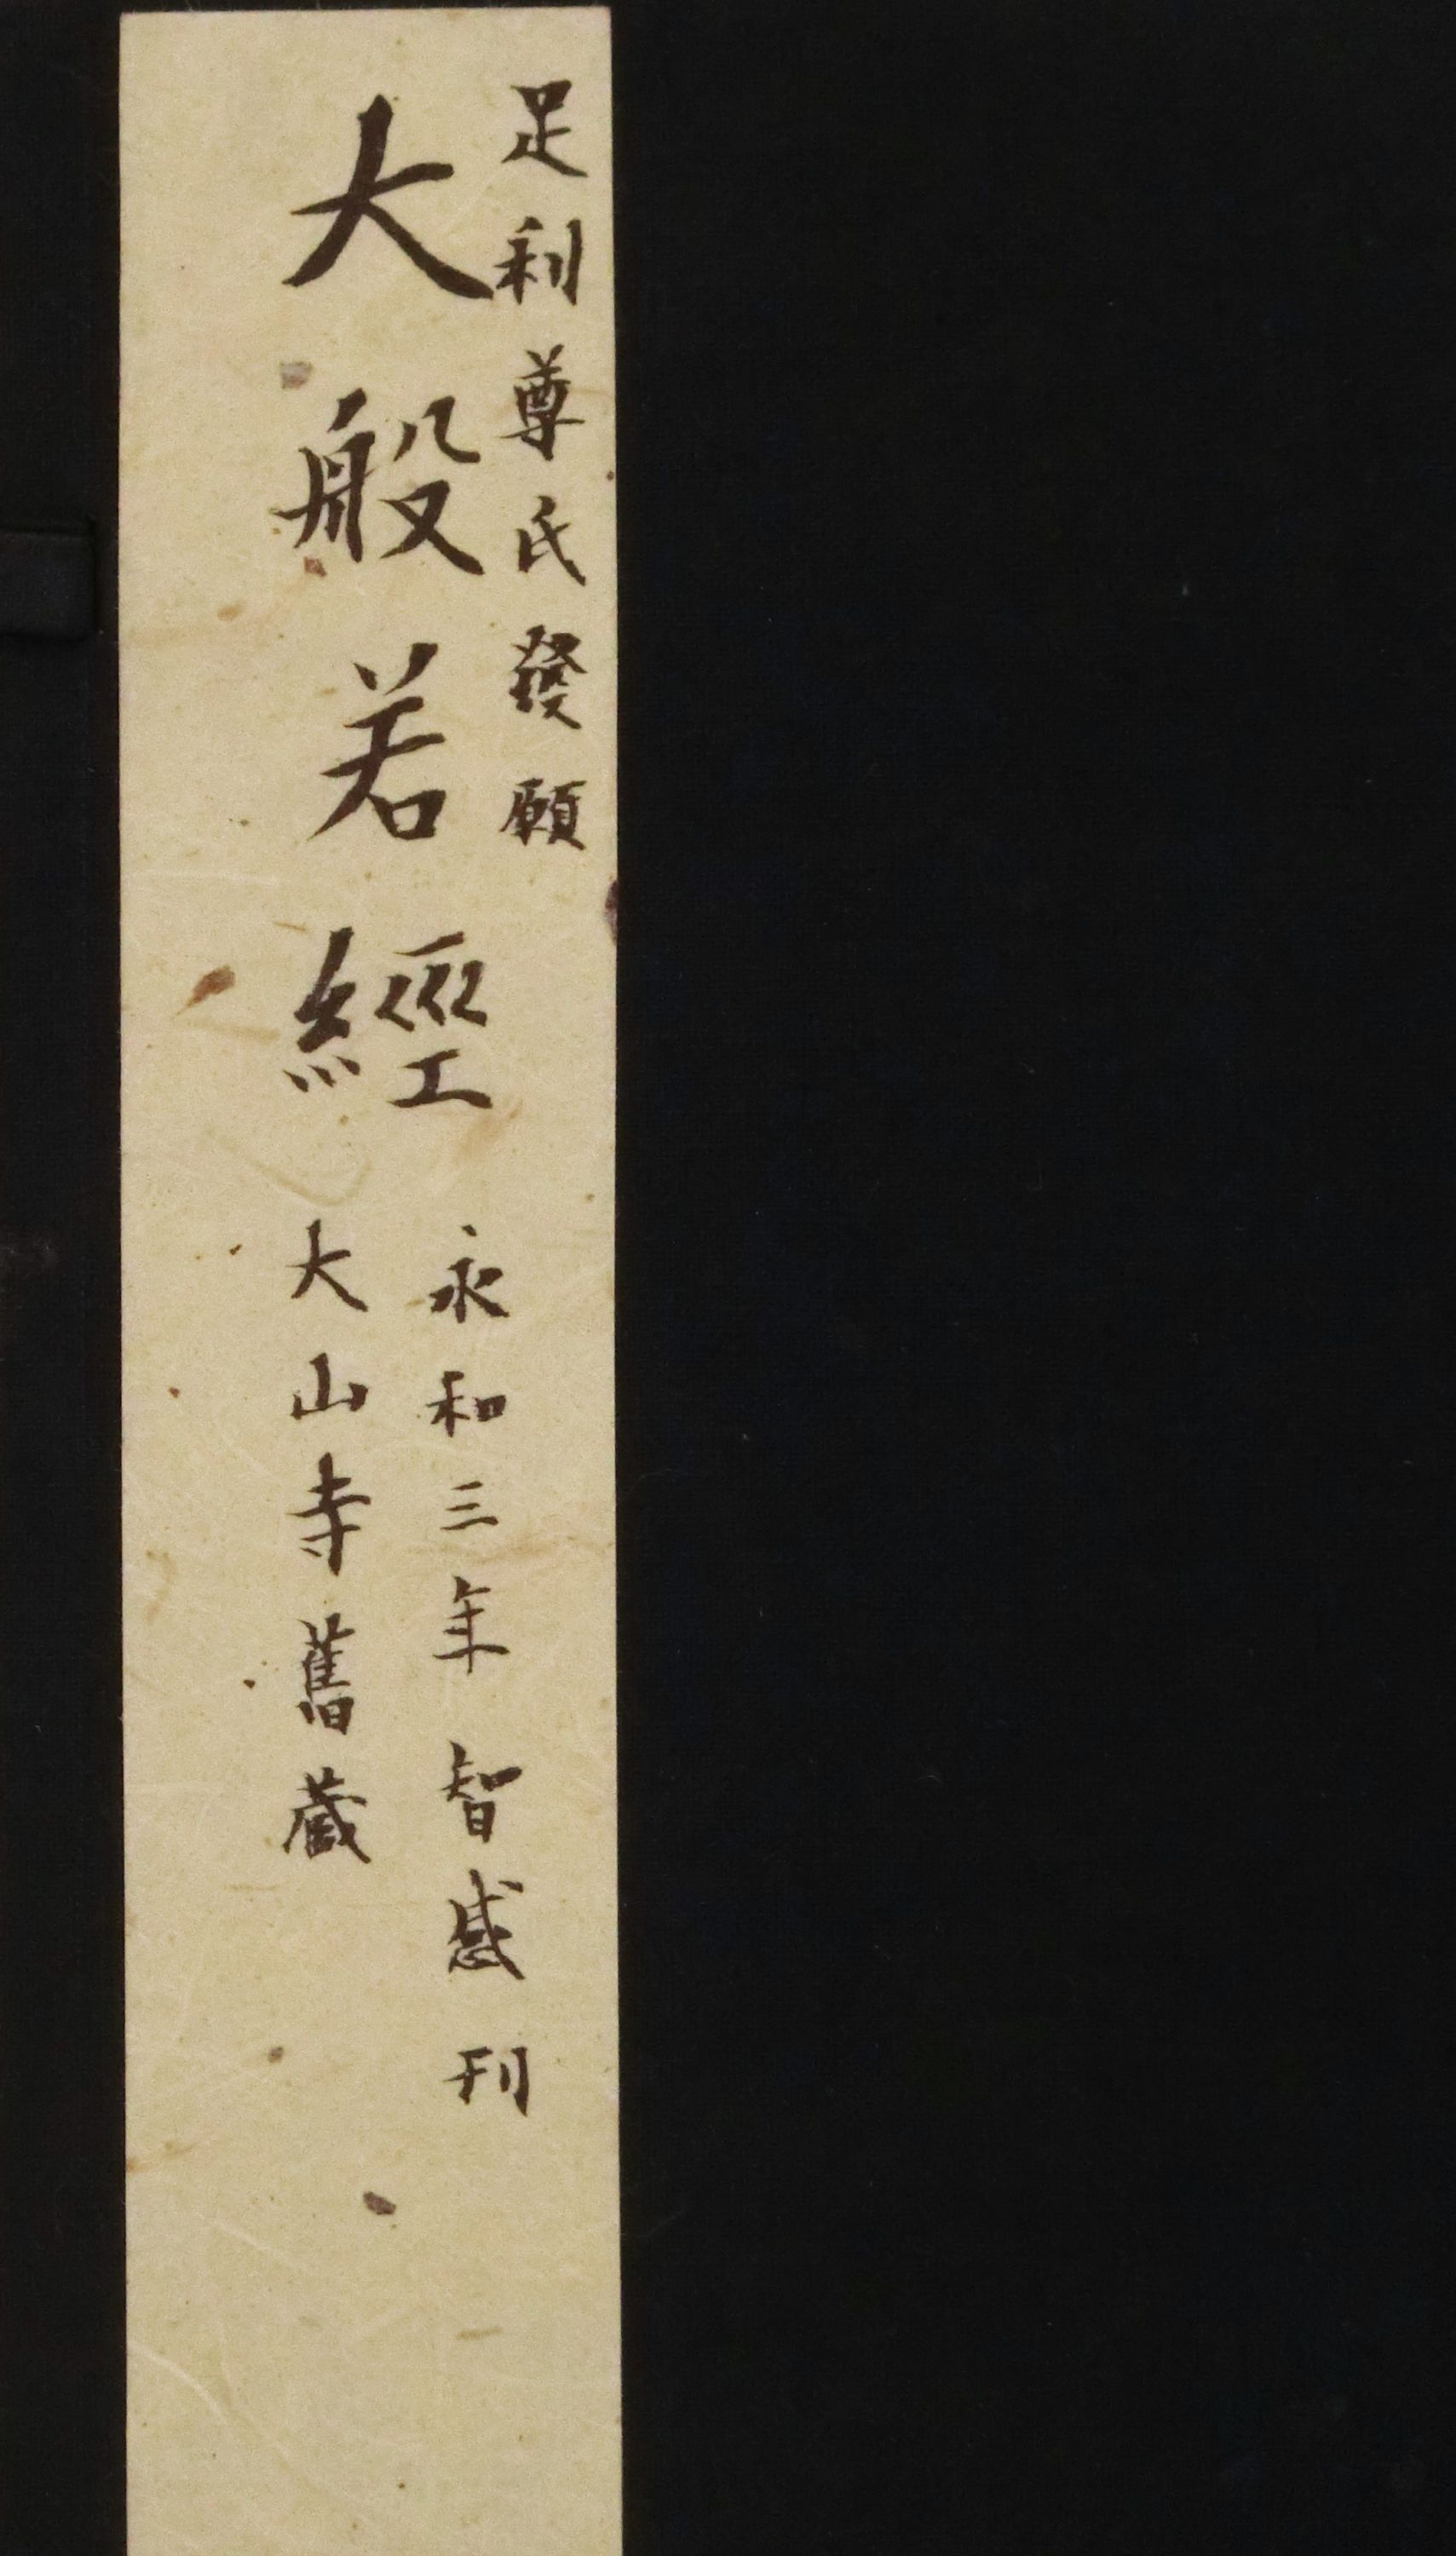 足利尊氏發願
大般若經
永和三年智感刊
大山寺舊蔵